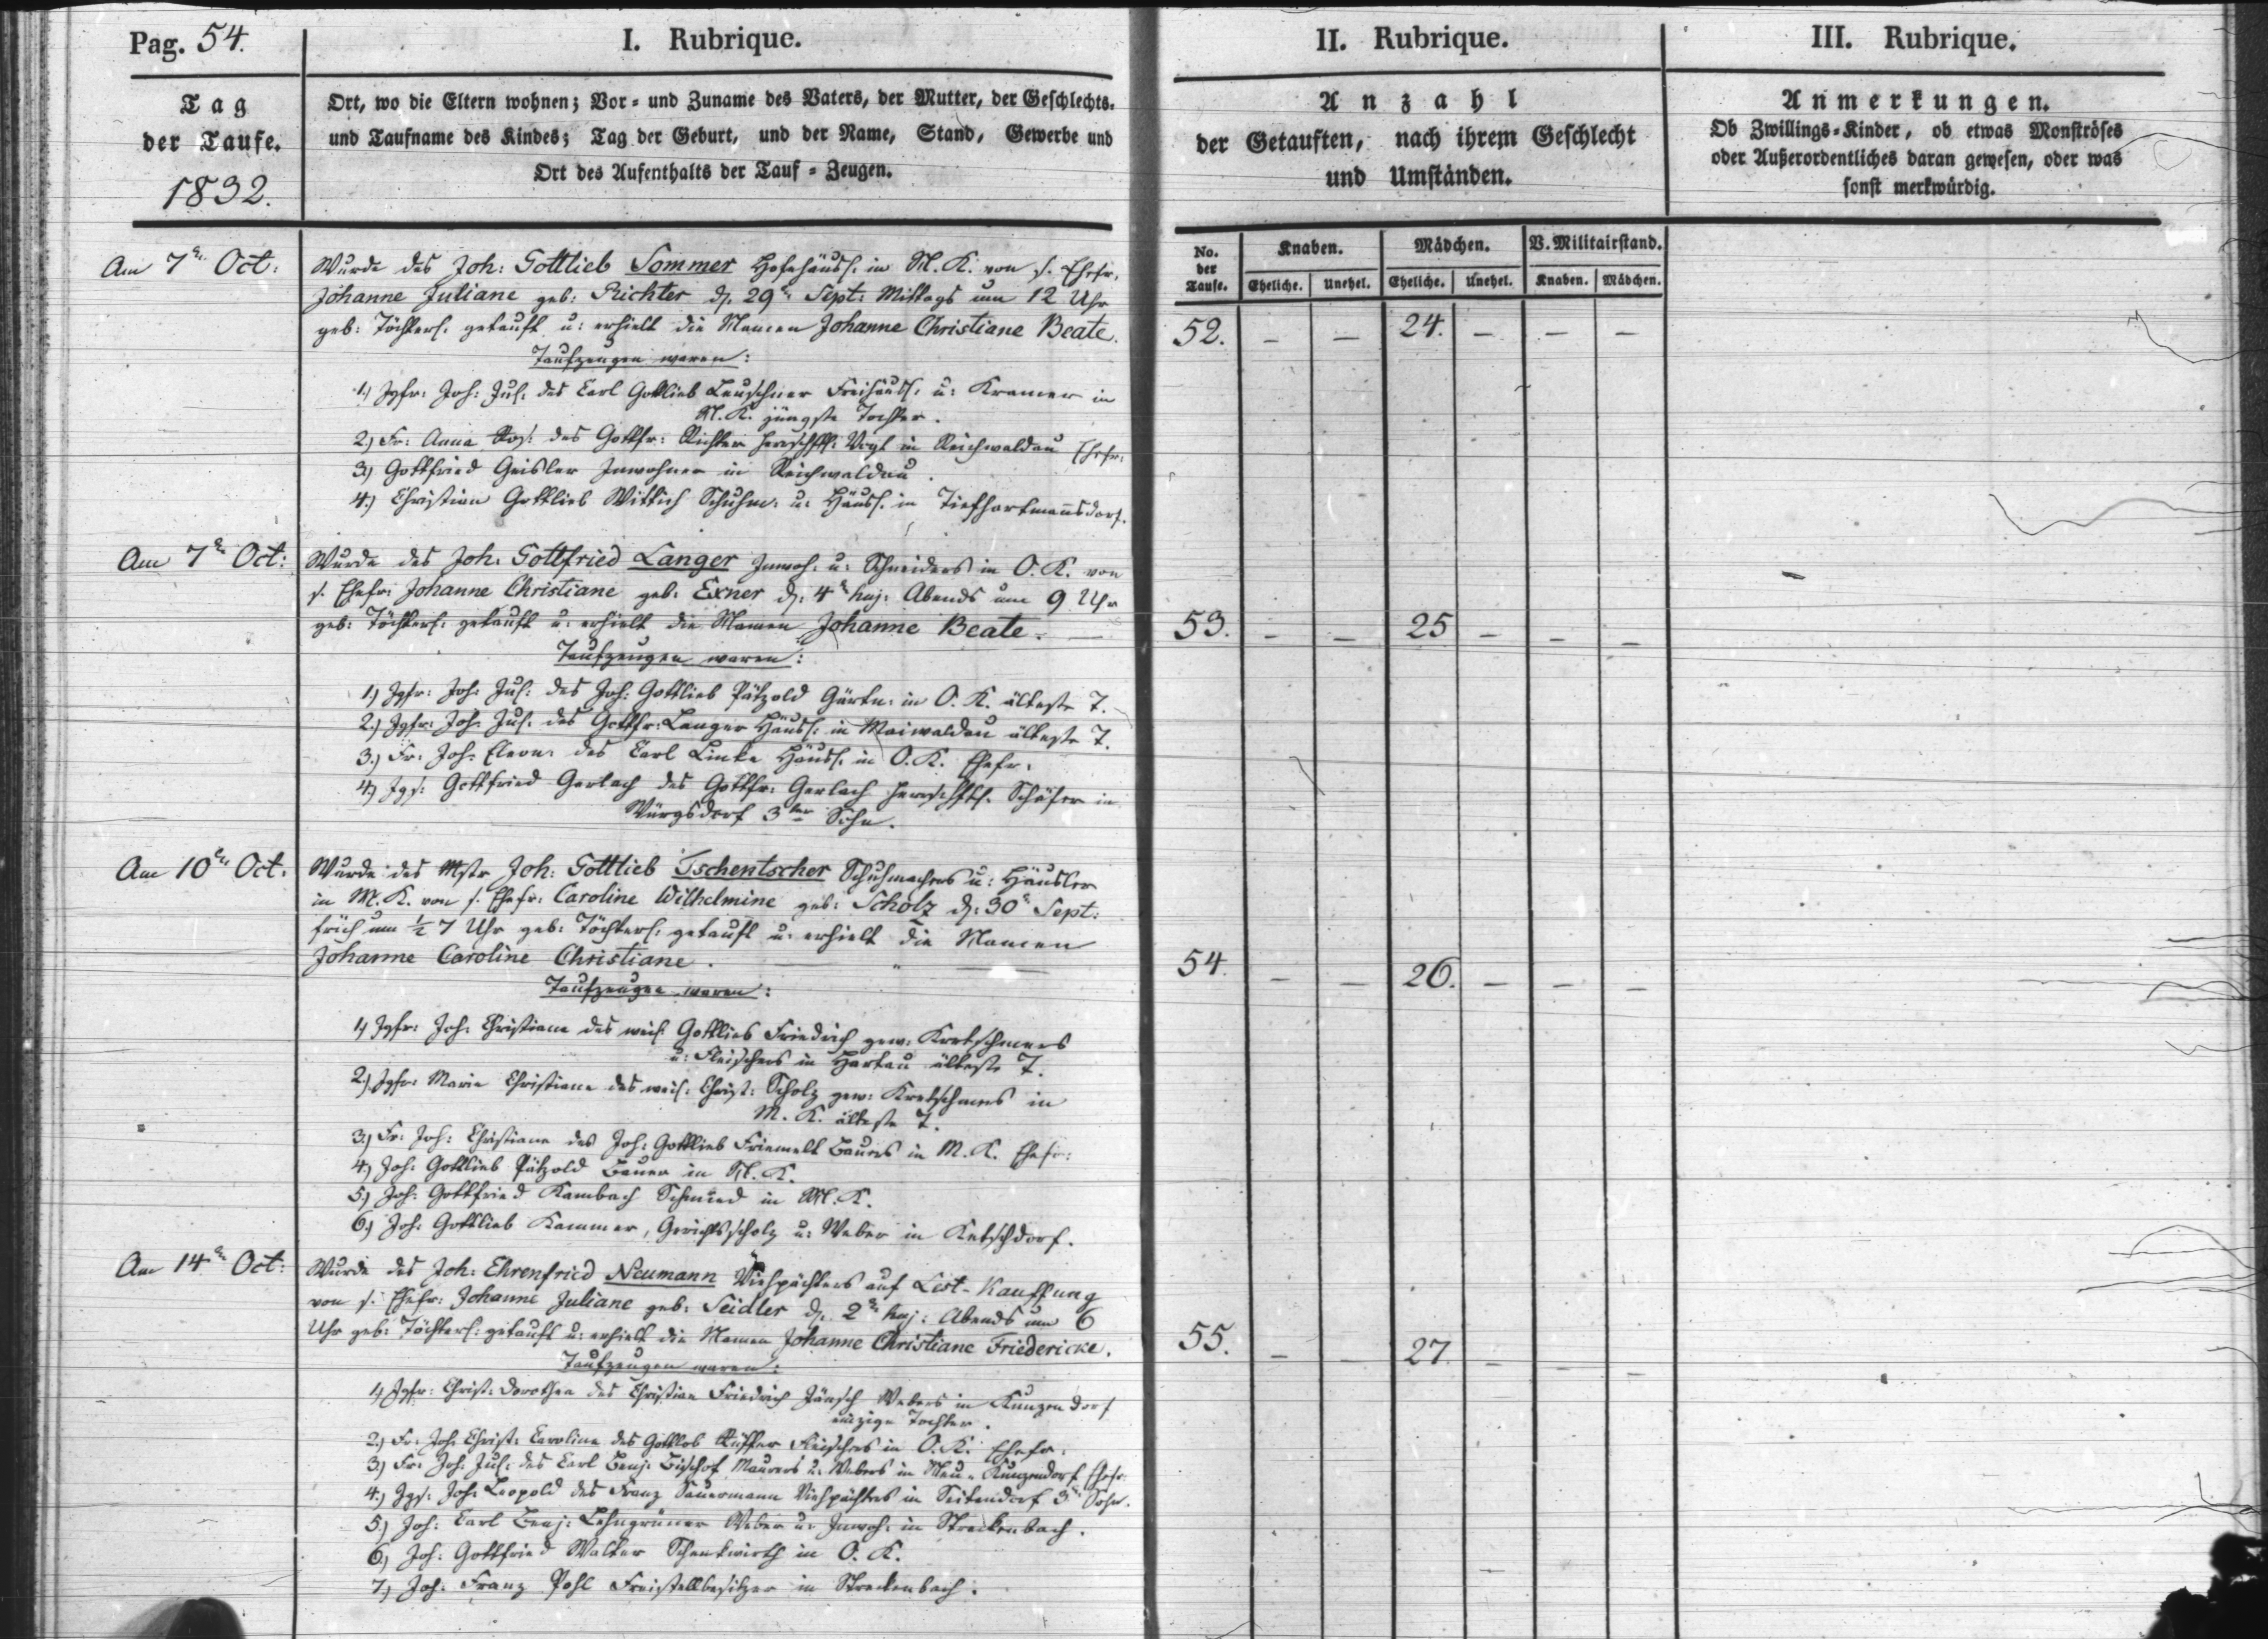 Pag. 54.
I. Rubrique.
II. Rubrique.
III. Rubrique.
Tag
der Taufe.
1832.
Ort, wo die Eltern wohnen; Vor- und Zuname des Vaters, der Mutter, der Geschlechts-
und Taufname des Kindes; Tag der Geburt, und der Name, Stand, Gewerbe und
Ort des Aufenthalts der Tauf-Zeugen.
Anzahl
der Getauften, nach ihrem Geschlecht
und Umständen.
Anmerkungen.
Ob Zwillings-Kinder, ob etwas Monströses
oder Außerordentliches daran gewesen, oder was
sonst merkwürdig.
No. der Taufe.
Knaben.
Mädchen.
V. Militairstand.
Eheliche. Unehel. Eheliche. Unehel. Knaben. Mädchen.
Am 7n Oct:
Wurde des Joh: Gottlieb Sommer Hofehäusl. in N. K. von s. Ehefr.
Johanne Juliane geb: Richter d. 29n Sept: Mittags um 12 Uhr
geb: Töchterl. getauft u: erhielt die Namen Johanne Christiane Beate.
52. – – 24. – – –
Taufzeugen waren:
1.) Jgfr: Joh: Jul: des Carl Gottlieb Leuschner Freihäusl. u: Kramer in
N. K. jüngste Tochter.
2.) Fr: Anna Ros: des Gottfr: Richter herrschftl. Vogt in Reichwaldau Ehefr:
3.) Gottfried Geisler Inwohner in Reichwaldau.
4.) Christian Gottlieb Wittich Schuhm: u: Häusl. in Tiefhartmannsdorf.
Am 7n Oct:
Wurde des Joh: Gottfried Langer Inwoh: u: Schneiders in O. K. von
s. Ehefr: Johanne Christiane geb: Exner d: 4n huj: Abends um 9 Uhr
geb: Töchterl: getauft u: erhielt die Namen Johanne Beate. —
53. – – 25 – – –
Taufzeugen waren:
1.) Jgfr: Joh: Jul: des Joh: Gottlieb Pätzold Gärtn: in O. K. älteste T.
2.) Jgfr: Joh: Jul: des Gottfr: Langer Häusl: in Maiwaldau älteste T.
3.) Fr: Joh: Eleon: des Carl Linke Häusl. in O. K. Ehefr.
4.) Jgs: Gottfried Gerlach des Gottfr: Gerlach herrschftl. Schäfer in
Würgsdorf 3ter Sohn.
Am 10n Oct.
Wurde des Mstr Joh: Gottlieb Tschentscher Schuhmachers u: Häusler
in M. K. von s. Ehefr: Caroline Wilhelmine geb: Scholz d: 30n Sept:
früh um ½ 7 Uhr geb: Töchterl: getauft u: erhielt die Namen
Johanne Caroline Christiane.
54. – – 26. – – –
Taufzeugen waren:
1.) Jgfr: Joh: Christiane des weil: Gottlieb Friedrich gew: Kretschmers
u: Fleischers in Hartau älteste T.
2.) Jgfr: Maria Christiane des weil: Christ: Scholz gew: Kretschmers in
M. K. älteste T.
3.) Fr: Joh: Christiane des Joh: Gottlieb Friemelt Bauers in M. K. Ehefr:
4.) Joh: Gottlieb Pätzold Bauer in N. K.
5.) Joh: Gottfried Kambach Schmied in M. K.
6.) Joh: Gottlieb Kammer, Gerichtsscholz u: Weber in Ketschdorf.
Am 14n Oct:
Wurde des Joh: Ehrenfried Neumann Viehpächters auf Lest-Kauffung
von s. Ehefr: Johanne Juliane geb: Seidler d. 2n huj: Abends um 6
Uhr geb: Töchterl: getauft u: erhielt die Namen Johanne Christiane Friedericke.
55. – – 27. – – –
Taufzeugen waren:
1.) Jgfr: Christ: Dorothea des Christian Friedrich Jänsch Webers in Kunzendorf
einzige Tochter.
2.) Fr: Joh: Christ: Caroline des Gottlob Küffer Fleischers in O. K. Ehefr.
3.) Fr: Joh: Jul: des Carl Benj: Bischof Maurers u: Webers in Neu-Kunzendorf Ehefr:
4.) Jgs: Joh: Leopold des Franz Sauermann Viehpächters in Seitendorf 3r Sohn.
5.) Joh: Carl Benj: Lehngrüner Weber u: Inwoh: in Streckenbach.
6.) Joh: Gottfried Walter Schenkwirth in O. K.
7.) Joh: Franz Pohl Freistellbesitzer in Streckenbach.